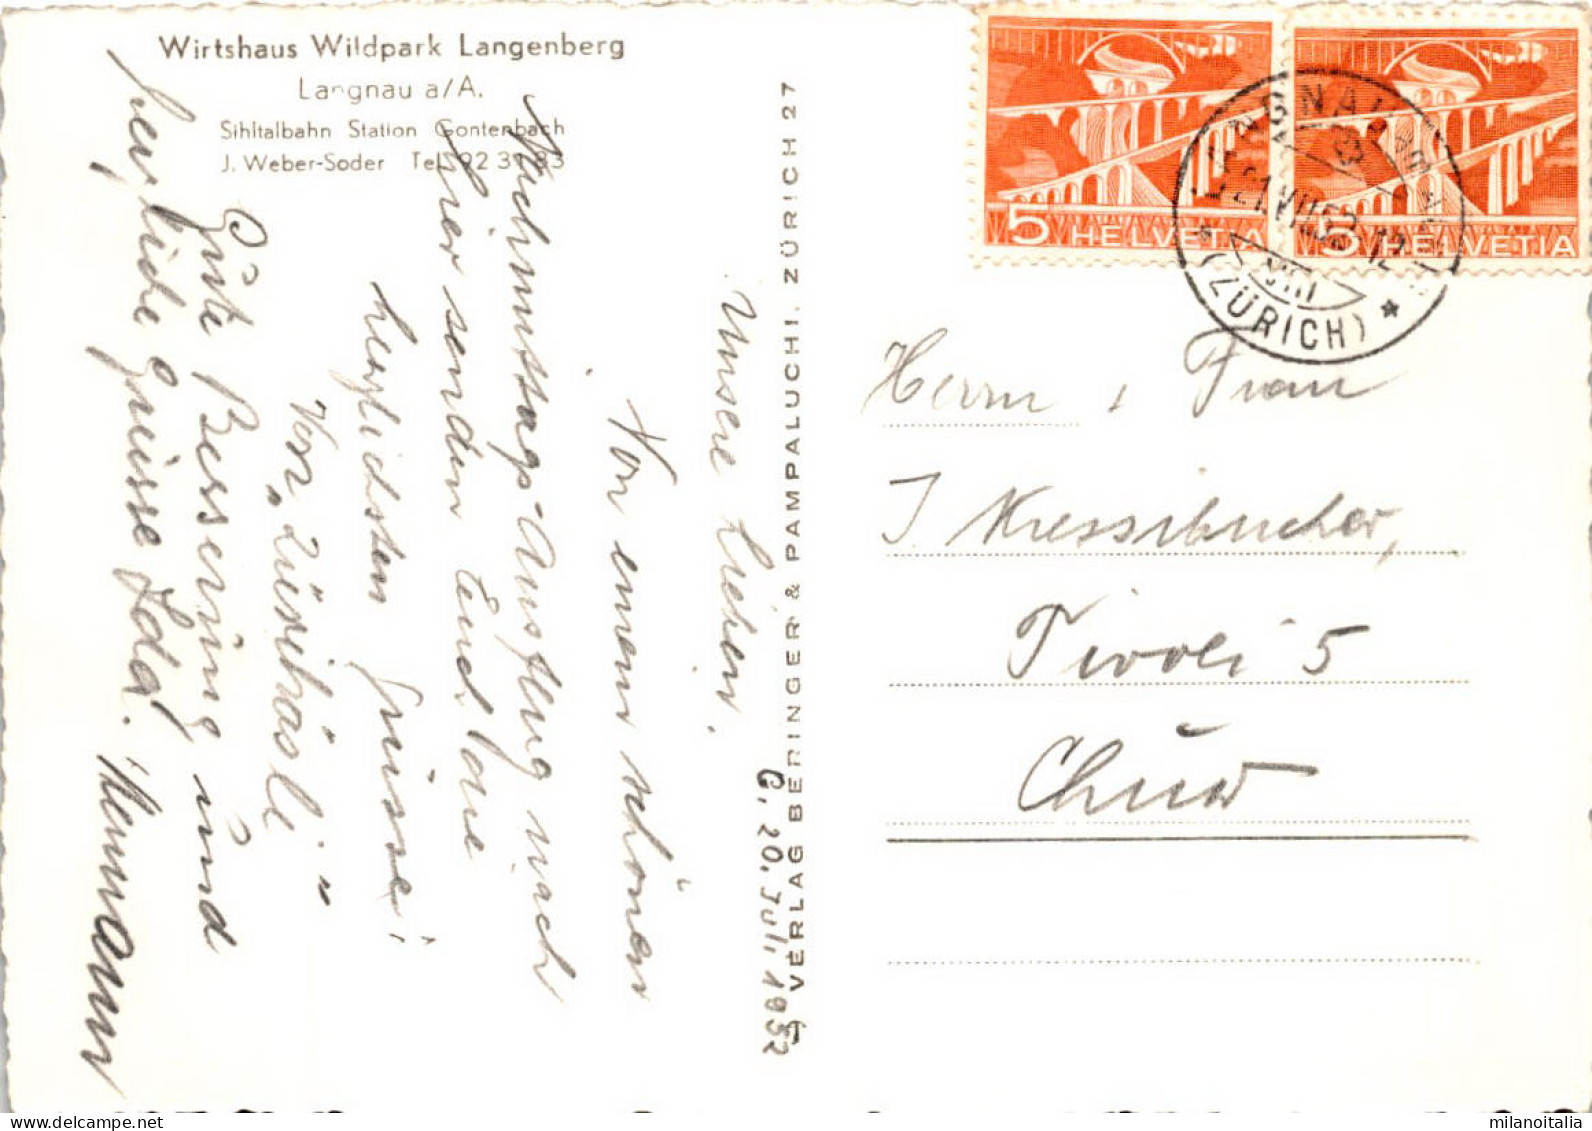 Wirtshaus Wildpark Langenberg
Langnau a/A.
Sihltalbahn Station Gontenbach
J. Weber-Soder Tel. 92 31 83
G. 20. Juli 1952
Unsere Lieben.
Von einem schönen
Nachmittags-Ausflug nach
hier senden Euch die
herzlichsten Grüsse!
Vor "Zürihäsli."
Gute Besserung und
herzliche Grüsse Ida.
Hermann
VERLAG BERINGER & PAMPALUCHI, ZÜRICH 27
5 HELVETIA
5 HELVETIA
LANGNAU
21.VII.52-12
VIII
(ZÜRICH)
Herrn & Frau
J. Kressibucher,
Tivoli 5
Chur
milanoitalia